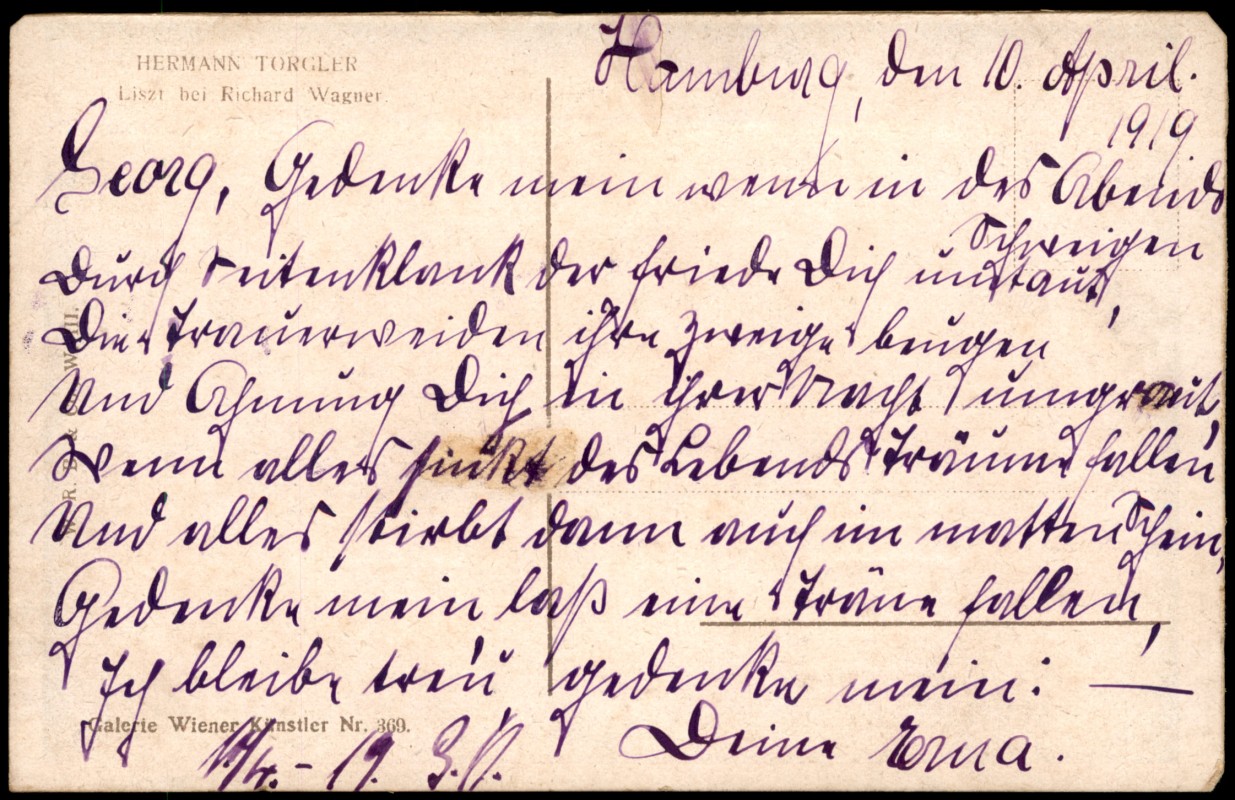 HERMANN TORGLER
Liszt bei Richard Wagner.
Hamburg, den 10. April.
1919
Georg, Gedenke mein wenn in des Abends
Schweigen
Durch Seitenklank der friede Dich umtaut,
Die Trauerweiden ihre Zweige beugen
Und Ahnung Dich in ihrer Nacht umgraut,
Wenn alles sinkt des Lebends Träume fallen
Und alles stirbt dann auch im matten Schein,
Gedenke mein laß eine Träne fallen,
Ich bleibe treu gedenke mein. —
Galerie Wiener Künstler Nr. 369.
Deine Erna.